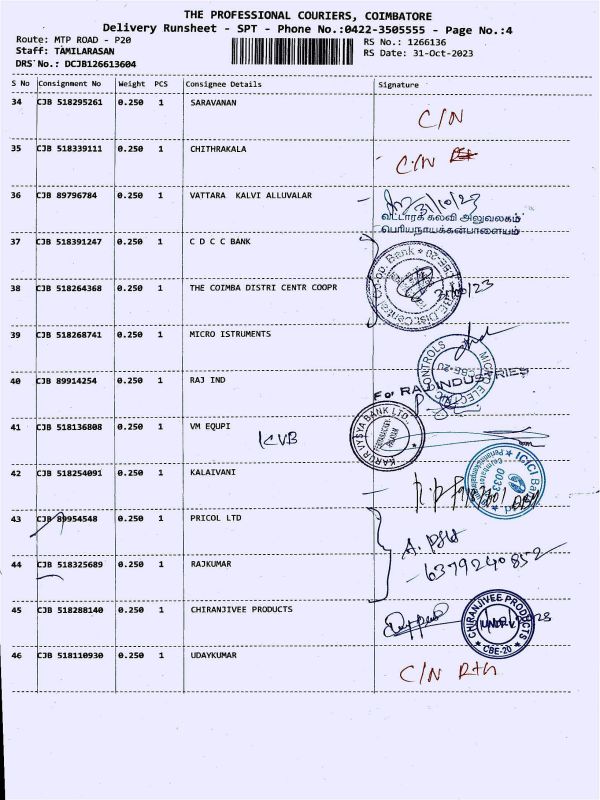 THE PROFESSIONAL COURIERS, COIMBATORE
Delivery Runsheet - SPT - Phone No.:0422-3505555 - Page No.:4
Route: MTP ROAD - P20
RS No.: 1266136
Staff: TAMILARASAN
RS Date: 31-Oct-2023
DRS No.: DCJB126613604
S No Consignment No Weight PCS Consignee Details Signature
34 CJB 518295261 0.250 1 SARAVANAN
C/N
35 CJB 518339111 0.250 1 CHITHRAKALA
C/N
36 CJB 89796784 0.250 1 VATTARA KALVI ALLUVALAR
31/10/23
வட்டாரக் கல்வி அலுவலகம்
பெரியநாயக்கன்பாளையம்
37 CJB 518391247 0.250 1 C D C C BANK
38 CJB 518264368 0.250 1 THE COIMBA DISTRI CENTR COOPR
39 CJB 518268741 0.250 1 MICRO ISTRUMENTS
40 CJB 89914254 0.250 1 RAJ IND
For RAJ INDUSTRIES
41 CJB 518136808 0.250 1 VM EQUPI
KVB
KARUR VYSYA BANK LTD.
42 CJB 518254091 0.250 1 KALAIVANI
ICICI Bank
43 CJB 89954548 0.250 1 PRICOL LTD
44 CJB 518325689 0.250 1 RAJKUMAR
6379240852
45 CJB 518288140 0.250 1 CHIRANJIVEE PRODUCTS
CHIRANJIVEE PRODUCTS
CBE-20
46 CJB 518110930 0.250 1 UDAYKUMAR
C/N